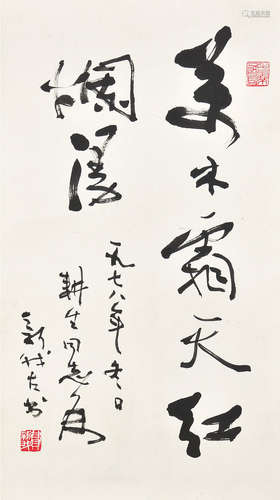 萬木霜天红
爛漫
一九七八年冬日
耕生同志
新我左书